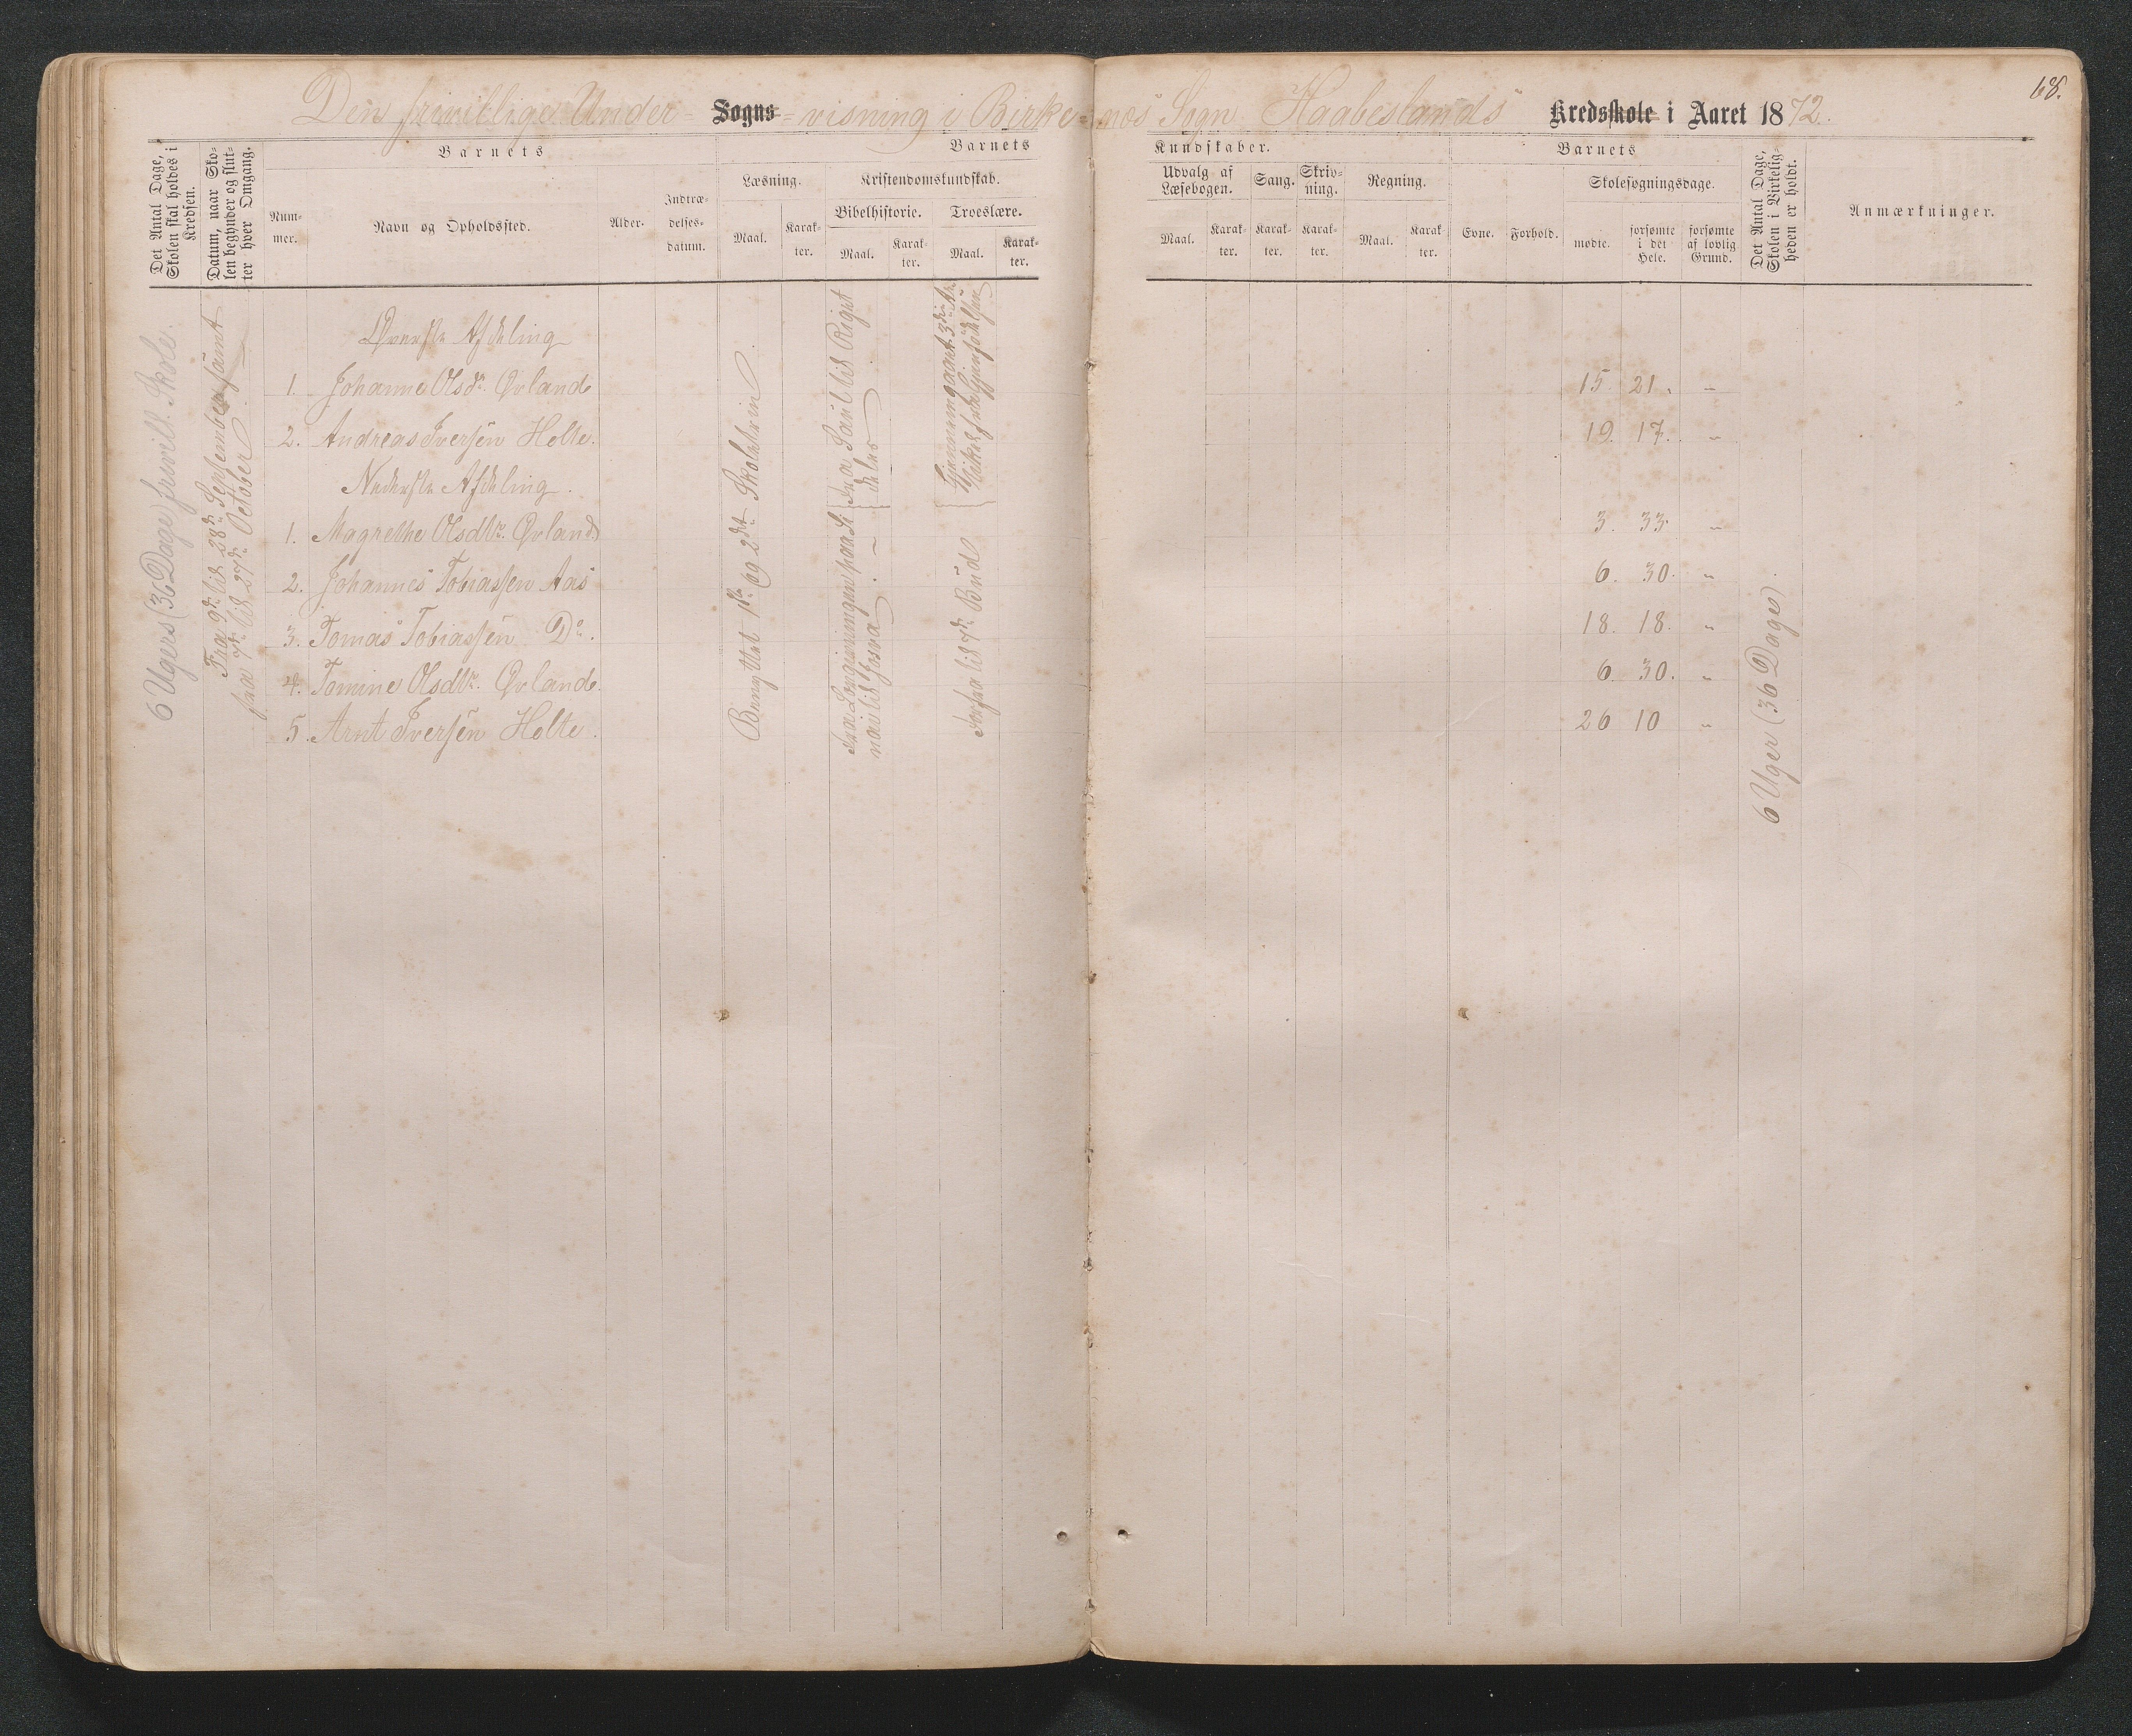 68.
Den frivillige Under- Sogns- visning i Birke- næs Sogn Haabeslands Kredsskole i Aaret 1872.
Det Antal Dage, Skolen skal holdes i Kredsen.
Datum, naar Skolen begynder og slutter hver Omgang.
Barnets
Nummer.
Navn og Opholdssted.
Alder.
Indtrædelsesdatum.
Barnets
Læsning.
Maal.
Karakter.
Kristendomskundskab.
Bibelhistorie.
Maal.
Karakter.
Troeslære.
Maal.
Karakter.
Kundskaber.
Udvalg af Læsebogen.
Maal.
Karakter.
Sang.
Karakter.
Skrivning.
Karakter.
Regning.
Maal.
Karakter.
Barnets
Evne.
Forhold.
Skolesøgningsdage.
mødte.
forsømte i det Hele.
forsømte af lovlig Grund.
Det Antal Dage, Skolen i Virkeligheden er holdt.
Anmærkninger.
6 Ugers (36 Dage) friwill. Skole.
Fra 9de til 28de September samt
fra 7de til 27de October
Øverste Afdeling
1. Johanne Olsdr. Øvland 15. 21. "
2. Andreas Iversen Holte. 19. 17. "
Nederste Afdeling.
1. Magrethe Olsdtr. Øvland 3. 33. "
2. Johannes Tobiassen Aas 6. 30. "
3. Tomas Tobiassen Do. 18. 18. "
4. Tomine Olsdtr. Øvland. 6. 30. "
5. Arnt Iversen Holte. 26 10 "
Benyttet 1ste og 2det Skoletrin.
fra Saul til Riget
deles
til Josva
til 7de Bud
6 Uger (36 Dage).